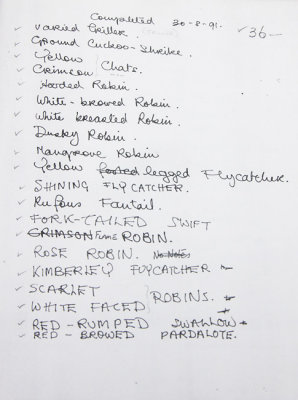 Completed 30-8-91.
✓ 36 —
✓ Varied Triller.
✓ Ground Cuckoo-Shrike.
✓ Yellow
✓ Crimson } Chats.
✓ Hooded Robin.
✓ White-browed Robin.
✓ White breasted Robin.
✓ Dusky Robin.
✓ Mangrove Robin
✓ Yellow legged Flycatcher.
✓ SHINING FLYCATCHER.
✓ Rufous Fantail.
✓ FORK-TAILED SWIFT
✓ CRIMSON FLAME ROBIN.
✓ ROSE ROBIN. No Notes
✓ KIMBERLEY FLYCATCHER
✓ SCARLET
✓ WHITE FACED } ROBINS.
✓ RED-RUMPED SWALLOW
✓ RED-BROWED PARDALOTE.